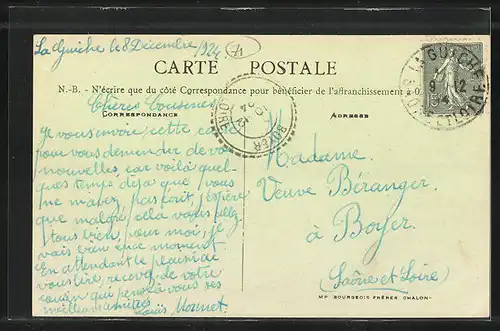 La Guiche le 8 Décembre 1924
CARTE POSTALE
N.-B. - N'écrire que du côté Correspondance pour bénéficier de l'affranchissement à 0
CORRESPONDANCE
ADRESSE
LA GUICHE
9 -12
SNE ET LOIRE
BOYER
LOIRE
Chères Cousines
Je vous envoie cette carte
pour vous demander de vos
nouvelles, car voilà quel-
ques temps déjà que vous
ne m'avez pas écrit, j'espère
que malgré cela vous allez
tous bien, pour moi, je
vais bien en ce moment
En attendant le plaisir de
vous lire, recevez de votre
cousin qui pense à vous ses
meilleures amitiés
Louis Monnet
Madame
Veuve Béranger
à Boyer
(Saône et Loire)
MP BOURGEOIS FRÈRES CHALON